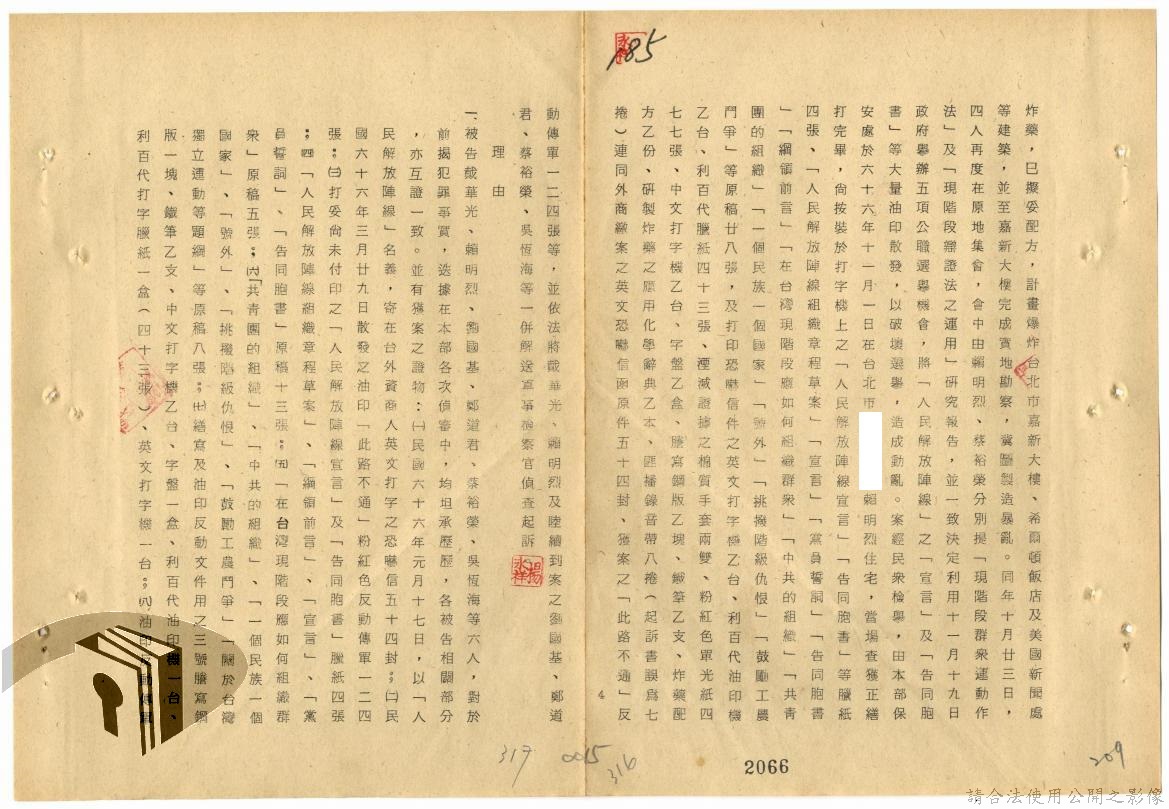 185
炸藥，已擬妥配方，計畫爆炸台北市嘉新大樓、希爾頓飯店及美國新聞處
等建築，並至嘉新大樓完成實地勘察，冀圖製造暴亂。同年十月廿三日，
四人再度在原地集會，會中由賴明烈、蔡裕榮分別提「現階段群衆運動作
法」及「現階段辯證法之運用」研究報告，並一致決定利用十一月十九日
政府舉辦五項公職選舉機會，將「人民解放陣線」之「宣言」及「告同胞
書」等大量油印散發，以破壞選舉，造成動亂。案經民衆檢舉，由本部保
安處於六十六年十一月一日在台北市 賴明烈住宅，當場查獲正繕
打完畢，尚按裝於打字機上之「人民解放陣線宣言」「告同胞書」等臘紙
四張、「人民解放陣線組織章程草案」「宣言」「黨員誓詞」「告同胞書
」「綱領前言」「在台灣現階段應如何組織群衆」「中共的組織」「共青
團的組織」「一個民族一個國家」「號外」「挑撥階級仇恨」「鼓勵工農
鬥爭」等原稿廿八張，及打印恐嚇信件之英文打字機乙台、利百代油印機
乙台、利百代臘紙四十三張、湮滅證據之棉質手套兩雙、粉紅色單光紙四
七七張、中文打字機乙台、字盤乙盒、謄寫鋼版乙塊、鐵筆乙支、炸藥配
方乙份、研製炸藥之應用化學辭典乙本、匪播錄音帶八捲（起訴書誤為七
捲）連同外商繳案之英文恐嚇信函原件五十四封、獲案之「此路不通」反
4
動傳單一二四張等，並依法將戴華光、賴明烈及陸續到案之劉國基、鄭道
君、蔡裕榮、吳恆海等一併解送軍事檢察官偵查起訴
理由
一、被告戴華光、賴明烈、劉國基、鄭道君、蔡裕榮、吳恆海等六人，對於
前揭犯罪事實，迭據在本部各次偵審中，均坦承歷歷，各被告相關部分
，亦互證一致。並有獲案之證物：㈠民國六十六年元月十七日，以「人
民解放陣線」名義，寄在台外資商人英文打字之恐嚇信五十四封；㈡民
國六十六年三月廿九日散發之油印「此路不通」粉紅色反動傳單一二四
張；㈢打妥尚未付印之「人民解放陣線宣言」及「告同胞書」臘紙四張
；㈣「人民解放陣線組織章程草案」、「綱領前言」、「宣言」、「黨
員誓詞」、「告同胞書」原稿十三張；㈤「在台灣現階段應如何組織群
衆」原稿五張；㈥「共青團的組織」、「中共的組織」、「一個民族一個
國家」、「號外」、「挑撥階級仇恨」、「鼓勵工農鬥爭」「關於台灣
獨立運動等題綱」等原稿八張；㈦繕寫及油印反動文件用之三號謄寫鋼
版一塊、鐵筆乙支、中文打字機乙台、字盤一盒、利百代油印機一台、
利百代打字臘紙一盒（四十三張）、英文打字機一台；㈧油印反動傳單
317
0015
316
2066
209
請合法使用公開之影像